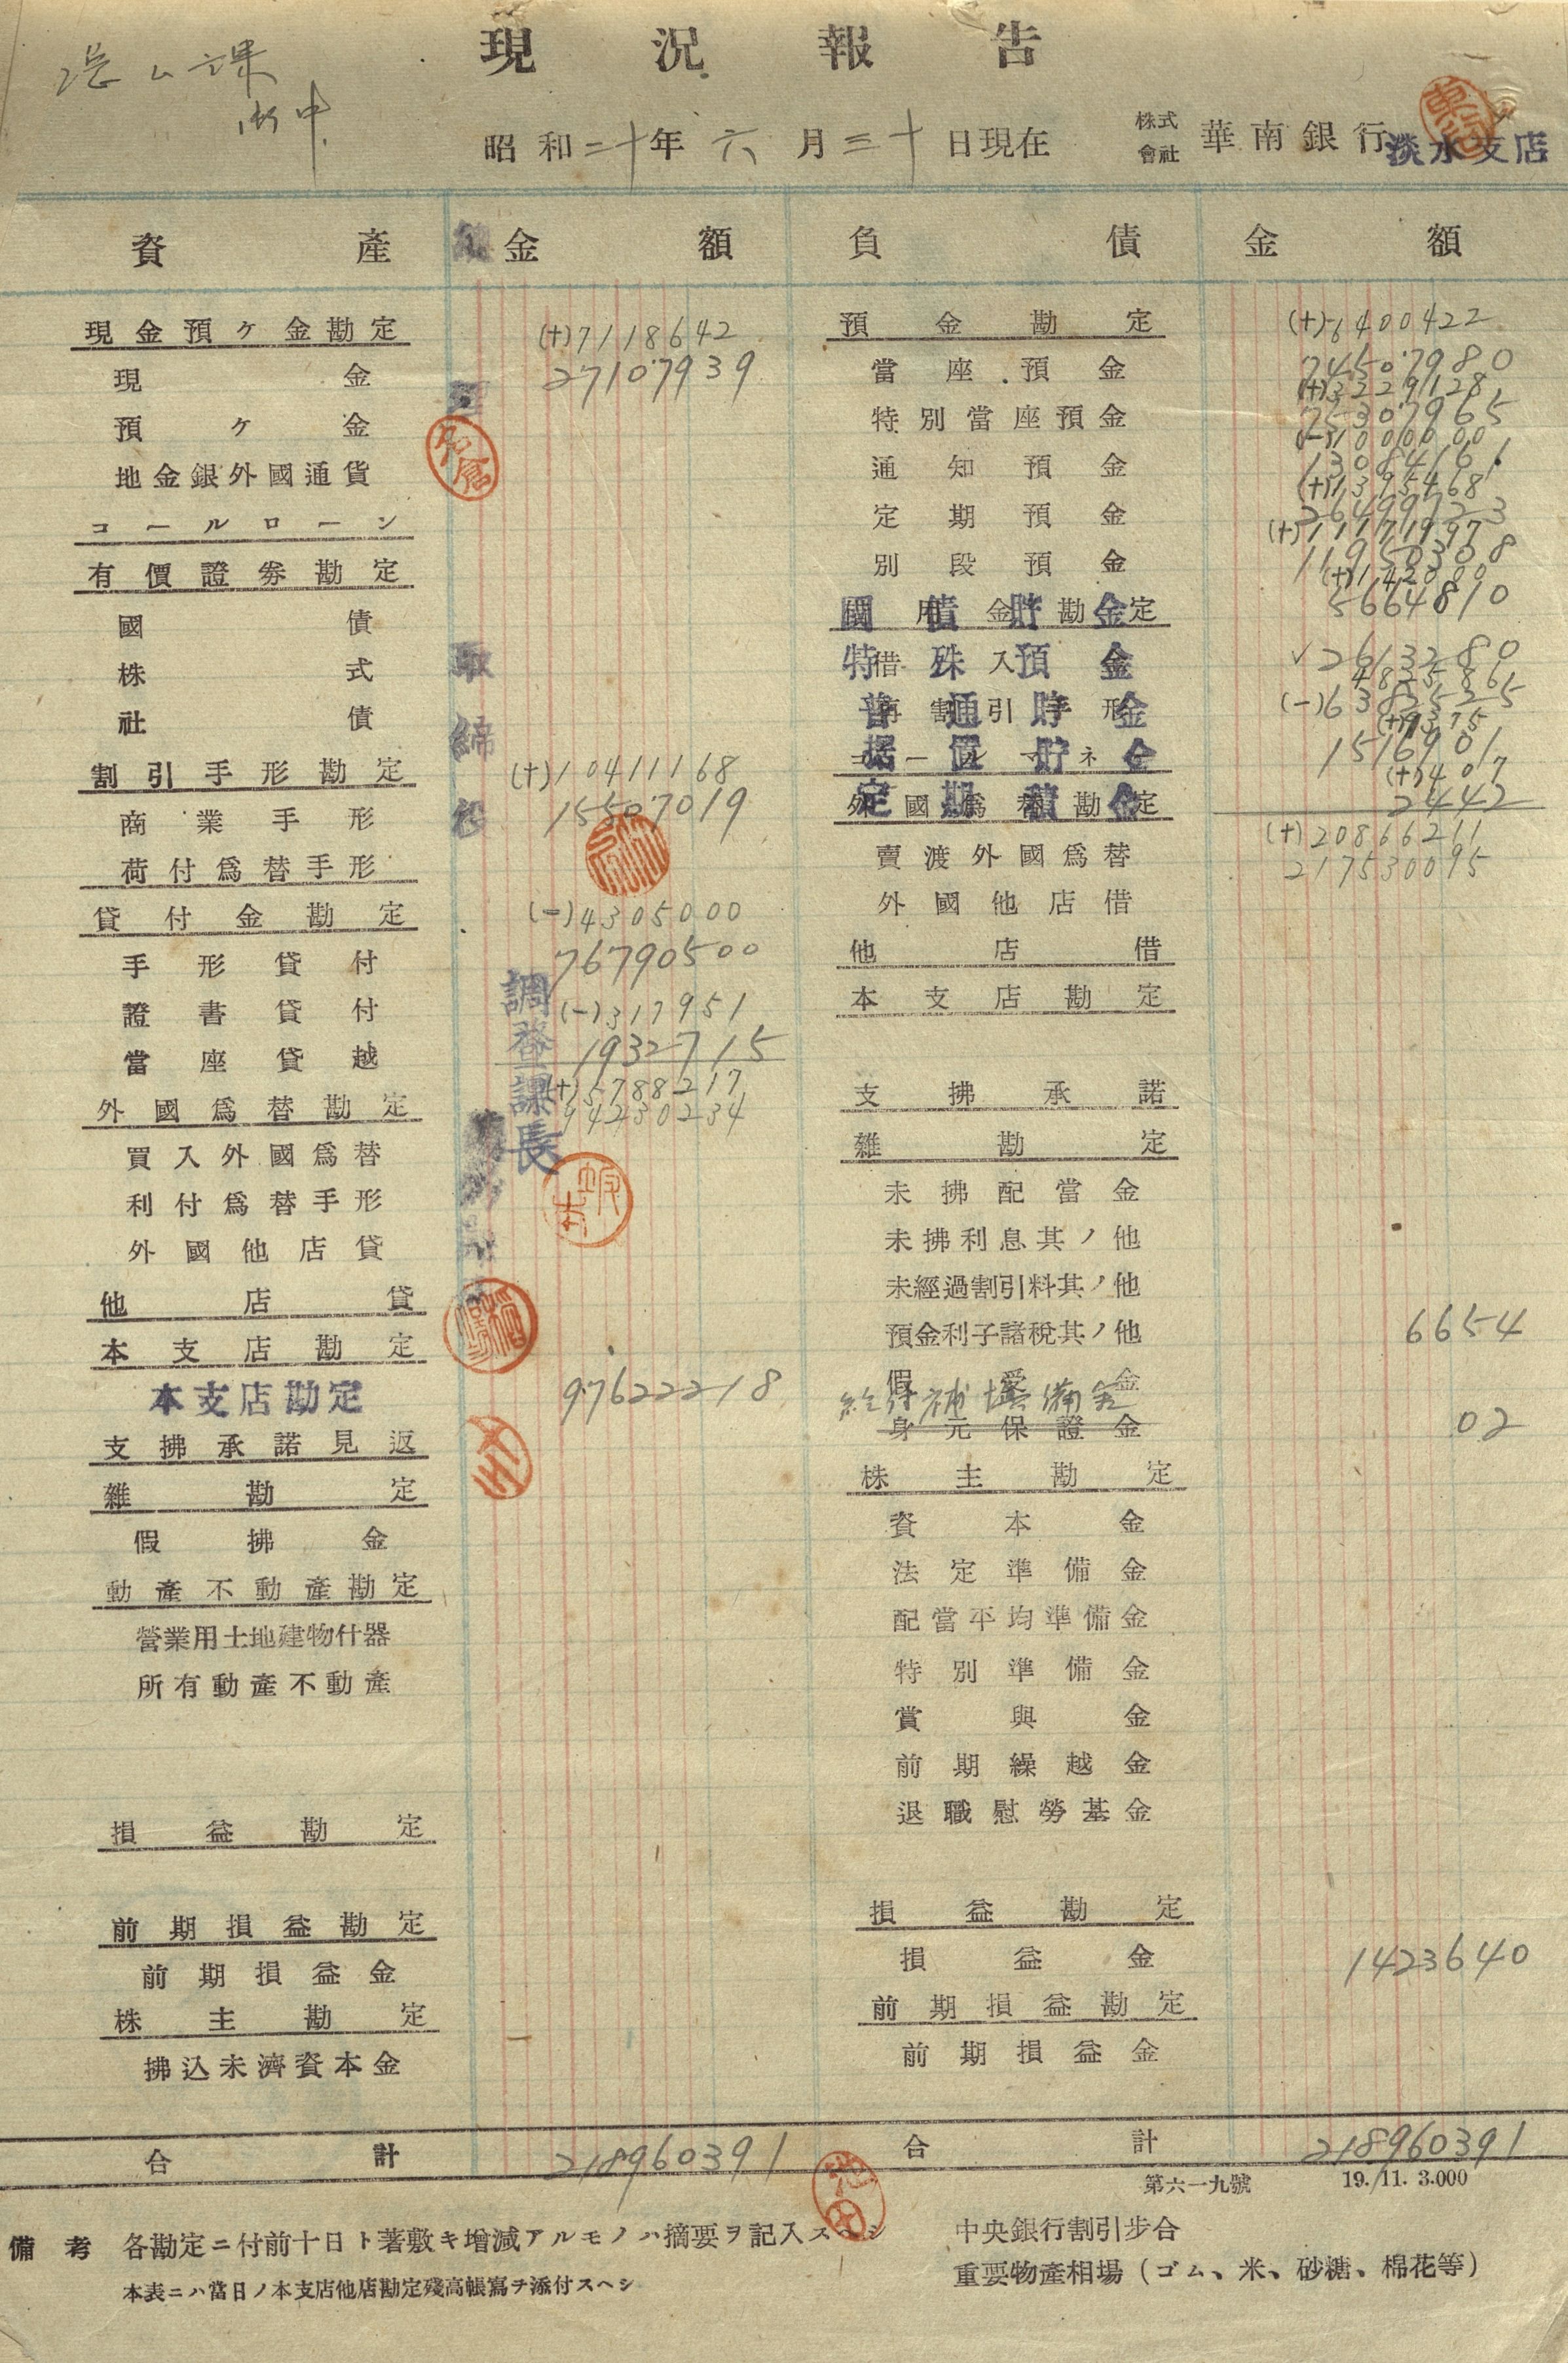 現況報告
御中
昭和二十年六月三十日現在
株式會社 華南銀行 淡水支店
資產 金額 負債 金額
現金預ヶ金勘定 (+)7118642
現金 27107939
預ヶ金
地金銀外國通貨
コールローン
有價證券勘定
國債
株式
社債
割引手形勘定 (+)10411168
商業手形 15507019
荷付爲替手形
貸付金勘定 (-)4305000
手形貸付 76790500
證書貸付 (-)317951
當座貸越 1932715
外國爲替勘定 (+)5788217
94230234
買入外國爲替
利付爲替手形
外國他店貸
他店貸
本支店勘定
本支店勘定 97622218
支拂承諾見返
雜勘定
假拂金
動產不動產勘定
營業用土地建物什器
所有動產不動產
損益勘定
前期損益勘定
前期損益金
株主勘定
拂込未濟資本金
合計 218960391
取締役
調査課長
名倉
預金勘定 (+)6400422
當座預金 74507980
(+)33291281
特別當座預金 75307965
(-)10000000
通知預金 13084161
(+)1395468
定期預金 26499123
(+)11171997
別段預金 11950308
(+)1142000
國債貯金 5664810
特殊預金 2613280
483586
普通貯金 (-)6382525
(+)9375
据置貯金 1516901
(+)407
定期積金 2442
(+)20866211
217530095
借入金
再割引手形
外國爲替勘定
賣渡外國爲替
外國他店借
他店借
本支店勘定
支拂承諾
雜勘定
未拂配當金
未拂利息其ノ他
未經過割引料其ノ他
預金利子諸稅其ノ他 6654
假受金
補塡備金
身元保證金 02
株主勘定
資本金
法定準備金
配當平均準備金
特別準備金
賞與金
前期繰越金
退職慰勞基金
損益勘定
損益金 1423640
前期損益勘定
前期損益金
合計 218960391
第六一九號 19. 11. 3.000
備考 各勘定ニ付前十日ト著敷キ增減アルモノハ摘要ヲ記入スヘシ
本表ニハ當日ノ本支店他店勘定殘高帳寫ヲ添付スヘシ
中央銀行割引步合
重要物產相場（ゴム、米、砂糖、棉花等）